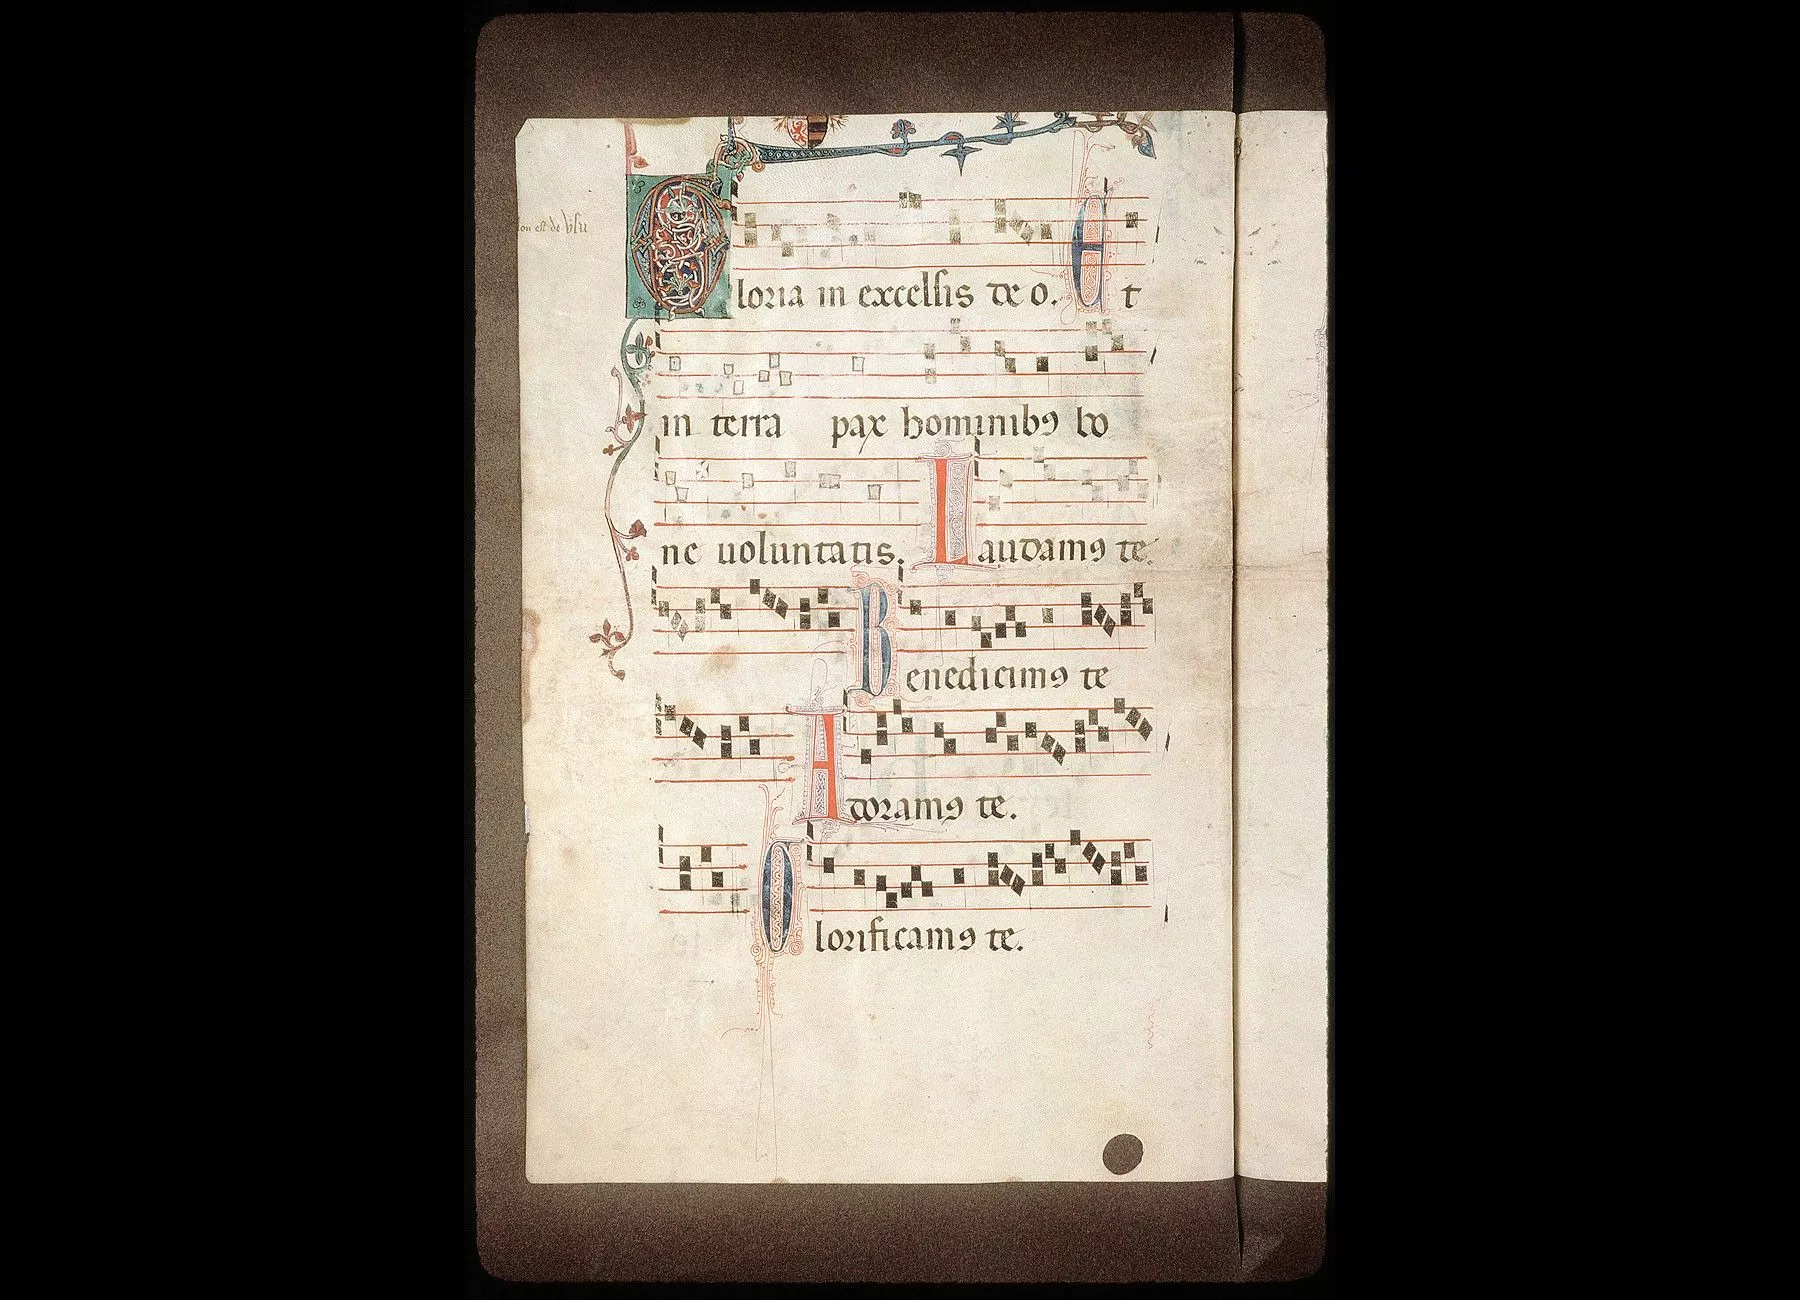 non est de usu
Gloria in excelsis deo. Et
in terra pax hominibꝰ bo
ne uoluntatis. Laudamꝰ te.
Benedicimꝰ te
Adoramꝰ te.
Glorificamꝰ te.